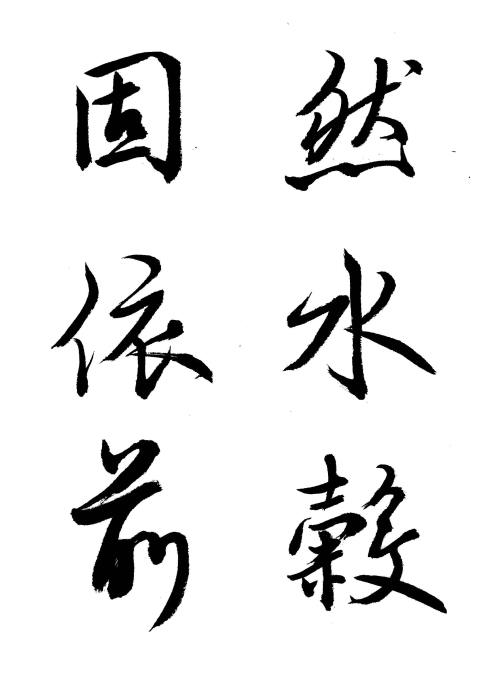 然水穀
固依前